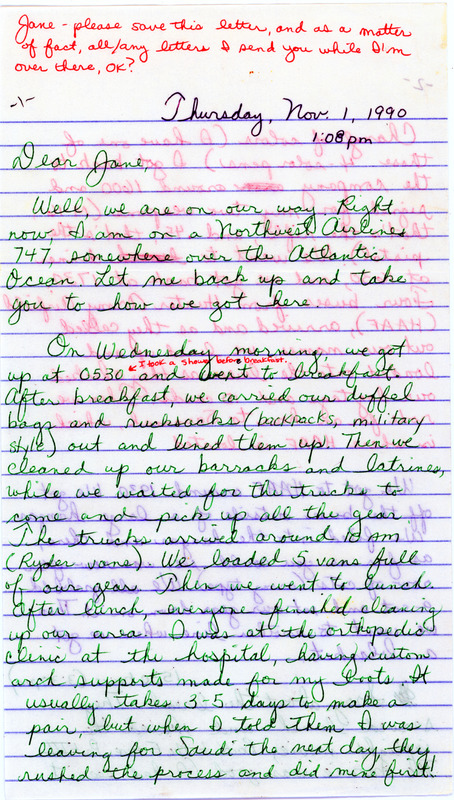 Jane - please save this letter, and as a matter
of fact, all/any letters I send you while I'm
over there, OK?
-1-
Thursday, Nov. 1, 1990
1:08 pm
Dear Jane,
Well, we are on our way. Right
now I am on a Northwest Airlines
747, somewhere over the Atlantic
Ocean. Let me back up and take
you to how we got here.
On Wednesday morning, we got
I took a shower before breakfast.
up at 0530 and went to breakfast.
After breakfast, we carried our duffel
bags and rucksacks (backpacks, military
style) out and lined them up. Then we
cleaned up our barracks and latrines,
while we waited for the trucks to
come and pick up all the gear.
The trucks arrived around 10 AM
(Ryder vans). We loaded 5 vans full
of our gear. Then we went to lunch.
After lunch, everyone finished cleaning
up our area. I was at the orthopedic
clinic at the hospital, having custom
arch supports made for my boots. It
usually takes 3-5 days to make a
pair, but when I told them I was
leaving for Saudi the next day they
rushed the process and did mine first!